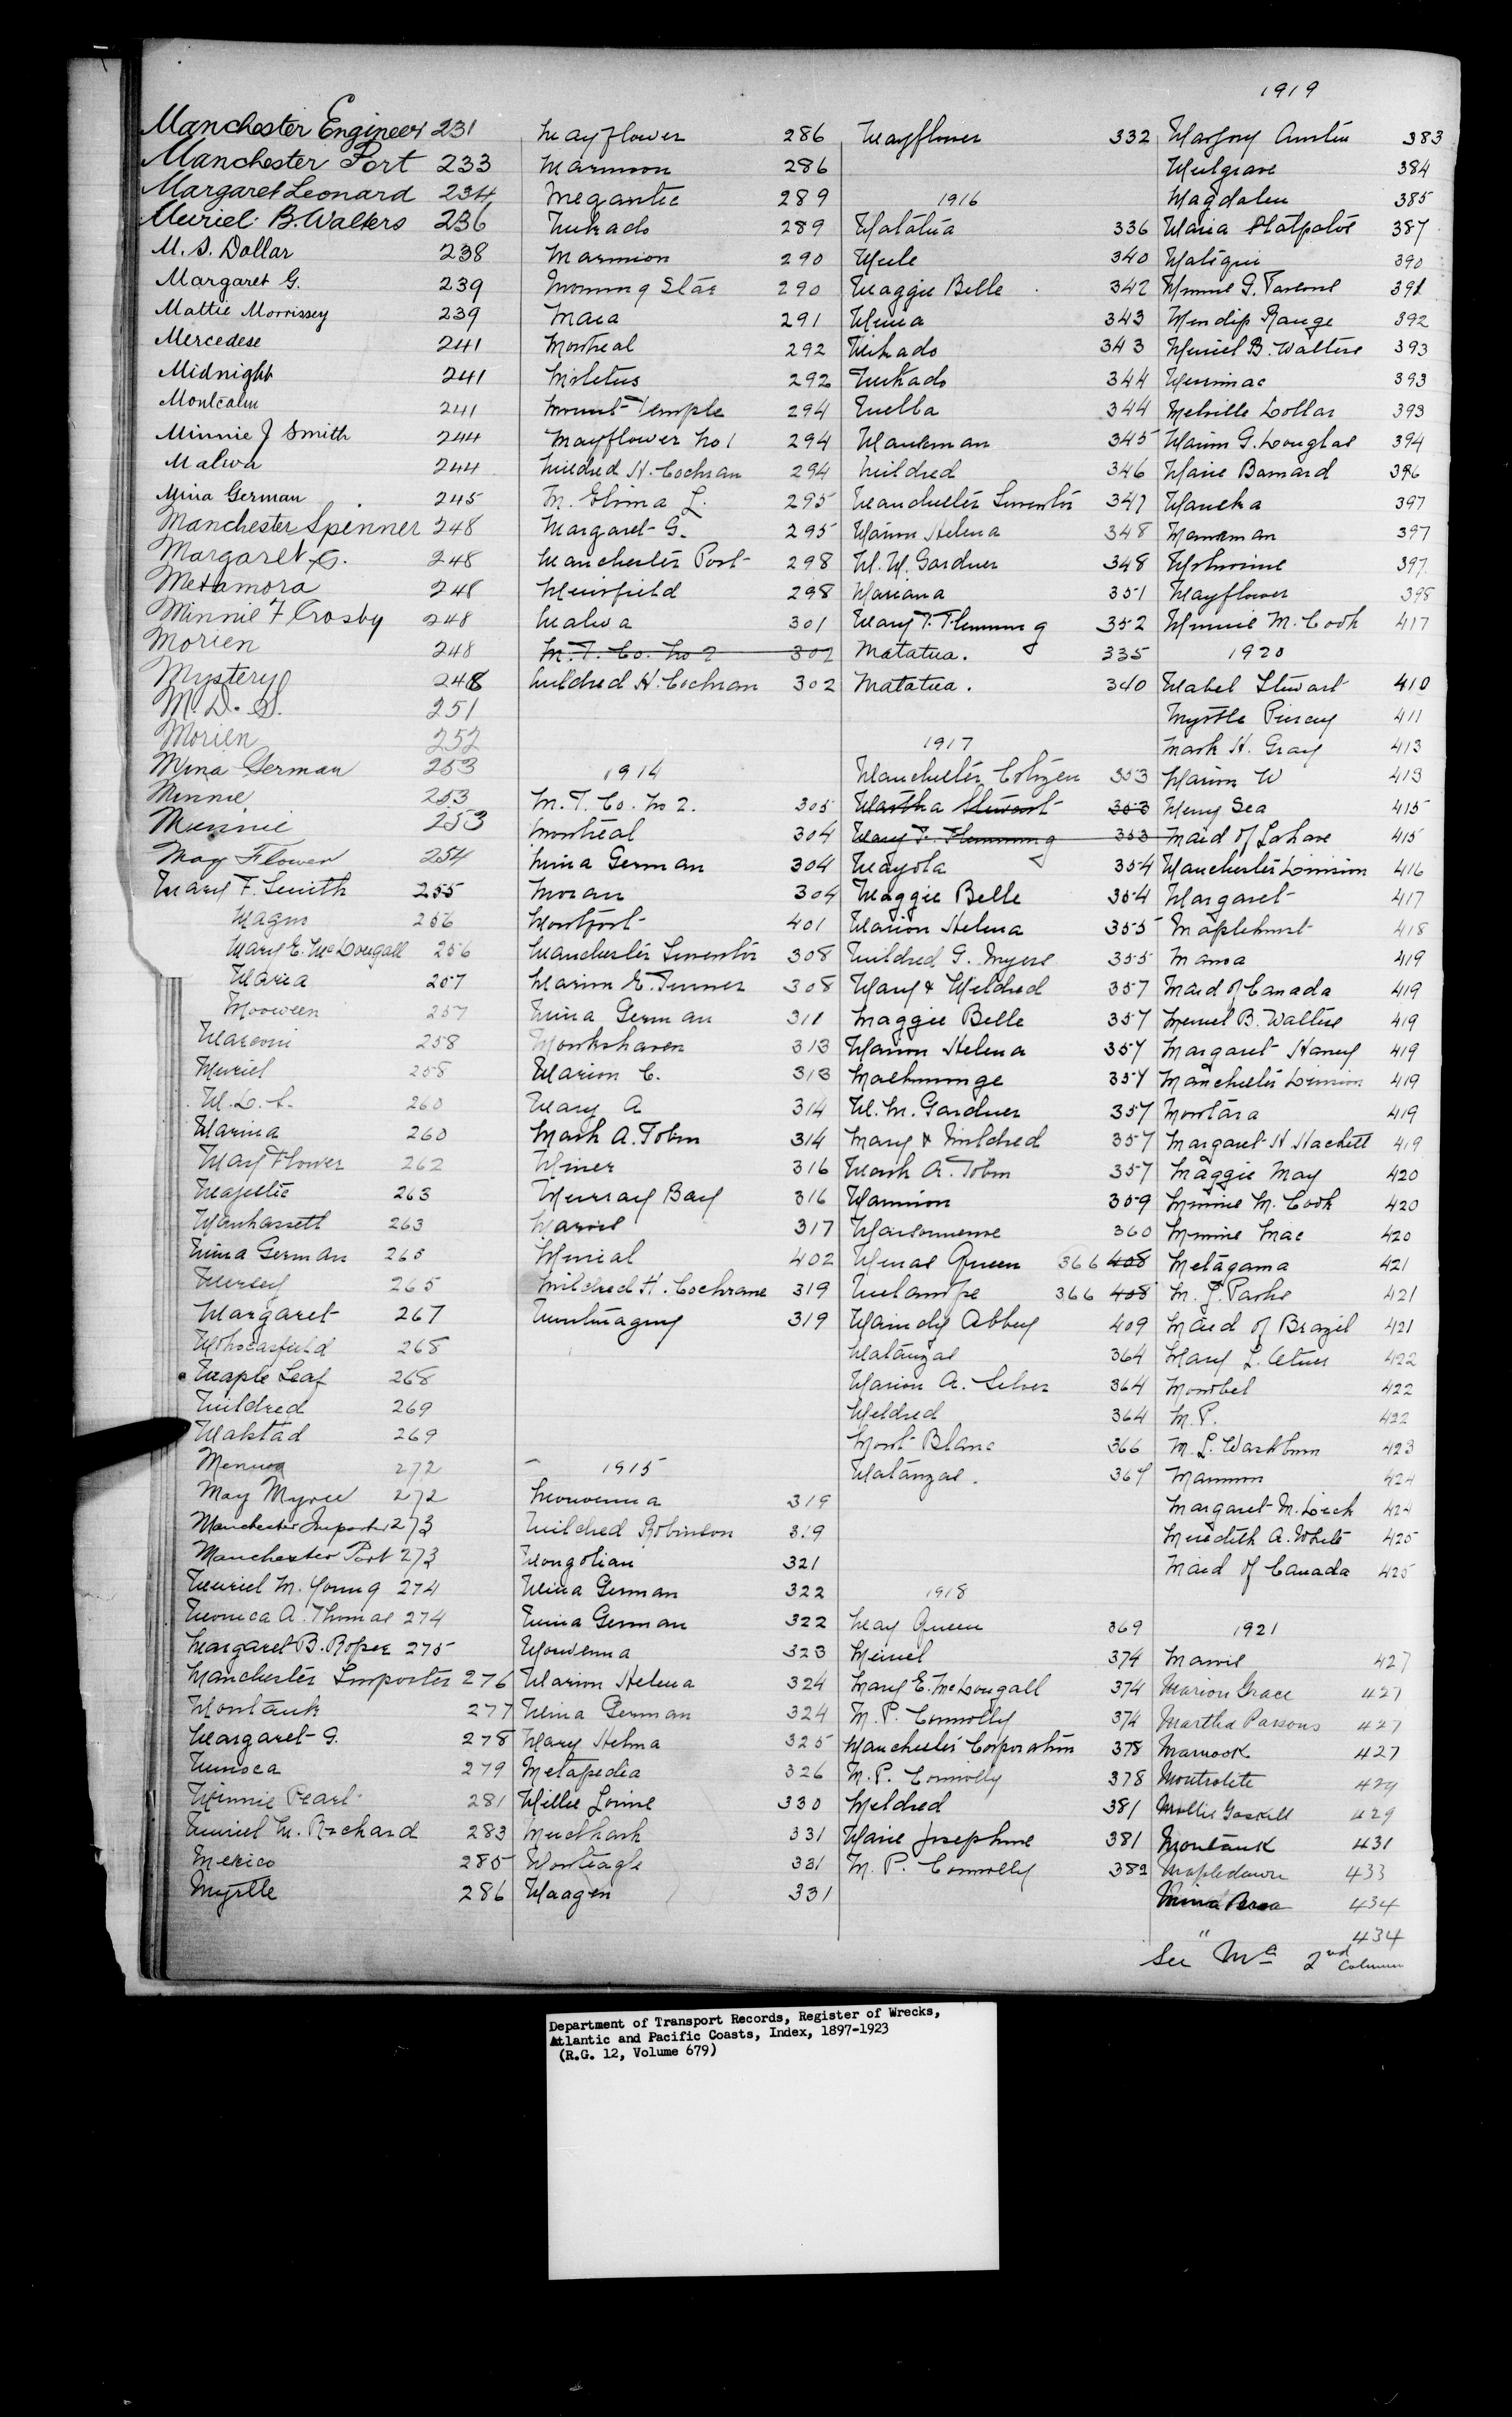 Manchester Engineer 231
Manchester Port 233
Margaret Leonard 234
Muriel B. Walters 236
M. S. Dollar 238
Margaret G. 239
Mattie Morrissey 239
Mercedese 241
Midnight 241
Montcalm 241
Minnie J Smith 244
Malwa 244
Mina German 245
Manchester Spinner 248
Margaret G. 248
Metamora 248
Minnie F Crosby 248
Morien 248
Mystery 248
M. D. S. 251
Morien 252
Mina German 253
Minnie 253
Minnie 253
May Flower 254
Mary F. Smith 255
Magus 256
Mary E. McDougall 256
Maria 257
Mooween 257
Marconi 258
Muriel 258
M. L. A. 260
Marina 260
May Flower 262
Majestic 263
Manhassett 263
Mina German 265
Mersey 265
Margaret 267
268
Maple Leaf 268
Mildred 269
Makstad 269
272
May Myree 272
Manchester Importer 273
Manchester Port 273
Muriel M. Young 274
Monica A. Thomas 274
Margaret B. Roper 275
Manchester Importer 276
Montauk 277
Margaret G. 278
279
Minnie Pearl 281
Muriel M. Richard 283
Mexico 285
Myrtle 286
Mayflower 286
Marmion 286
Megantic 289
Mikado 289
Marmion 290
Morning Star 290
Maia 291
Montreal 292
Miletus 292
Mount Temple 294
Mayflower No 1 294
Mildred H. Cochran 294
M. Elvina L. 295
Margaret G. 295
Manchester Port 298
Muirfield 298
Malwa 301
M. T. Co. No 2 302
Mildred H. Cochran 302
1914
M. T. Co. No 2. 305
Montreal 304
Mina German 304
Moran 304
Montfort 401
Manchester Inventor 308
Marion E. Turner 308
Mina German 311
Monkshaven 313
Marion C. 313
Mary A 314
Mark A. Tobin 314
Miner 316
Murray Bay 316
317
402
Mildred H. Cochrane 319
Montmagny 319
1915
Morwenna 319
Mildred Robinson 319
Mongolian 321
Mina German 322
Mina German 322
Morwenna 323
Marion Helena 324
Mina German 324
Mary Helma 325
Metapedia 326
Millie Louise 330
331
Monteagle 331
Maagen 331
Mayflower 332
1916
Matatua 336
Mule 340
Maggie Belle 342
Mina 343
Mikado 343
Mikado 344
Muella 344
Manxman 345
Mildred 346
Manchester Inventor 347
Marion Helena 348
M. M. Gardner 348
Mariana 351
Mary F. Flemming 352
Matatua. 335
Matatua. 340
1917
Manchester Citizen 353
Martha Stewart 353
Mary F. Flemming 353
Mayola 354
Maggie Belle 354
Marion Helena 355
Mildred G. Myers 355
Mary & Mildred 357
Maggie Belle 357
Marion Helena 357
357
M. M. Gardner 357
Mary & Mildred 357
Mark A. Tobin 357
Marmion 359
Maisonneuve 360
Minas Queen 366 408
Melampe 366 408
Maindy Abbey 409
Matanzas 364
Marion A. Silver 364
Mildred 364
Mont Blanc 366
Matanzas. 367
1918
May Queen 369
Muriel 374
Mary E. McDougall 374
M. P. Connolly 374
Manchester Corporation 378
M. P. Connolly 378
Mildred 381
Marie Josephine 381
M. P. Connolly 382
1919
Marjory Austin 383
Mulgrave 384
Magdalen 385
Maria Statpatos 387
Matigui 390
Minnie G. Parsons 391
Mendip Range 392
Muriel B. Walters 393
Merrimac 393
Melville Dollar 393
Marion G. Douglas 394
Marie Barnard 396
Maneka 397
Manxman 397
397
Mayflower 398
Minnie M. Cook 417
1920
Mabel Stewart 410
Myrtle Piercy 411
Mark H. Gray 413
Marion W 413
Merry Sea 415
Maid of Lahave 415
Manchester Division 416
Margaret 417
Maplehurst 418
Mansa 419
Maid of Canada 419
Muriel B. Walters 419
Margaret Haney 419
Manchester Division 419
Montara 419
Margaret H Hackett 419
Maggie May 420
Minnie M. Cook 420
Minnie Mac 420
Metagama 421
M. J. Parks 421
Maid of Brazil 421
Mary L. 422
Montbel 422
M. P. 422
M. L. Washburn 423
Marmion 424
Margaret M. 424
Meredith A. White 425
Maid of Canada 425
1921
427
Marion Grace 427
Martha Parsons 427
Marwook 427
Montrolite 429
Mollie Gaskill 429
Montauk 431
Mapledawn 433
434
" 434
See Mc 2nd Column
Department of Transport Records, Register of Wrecks,
Atlantic and Pacific Coasts, Index, 1897-1923
(R.G. 12, Volume 679)